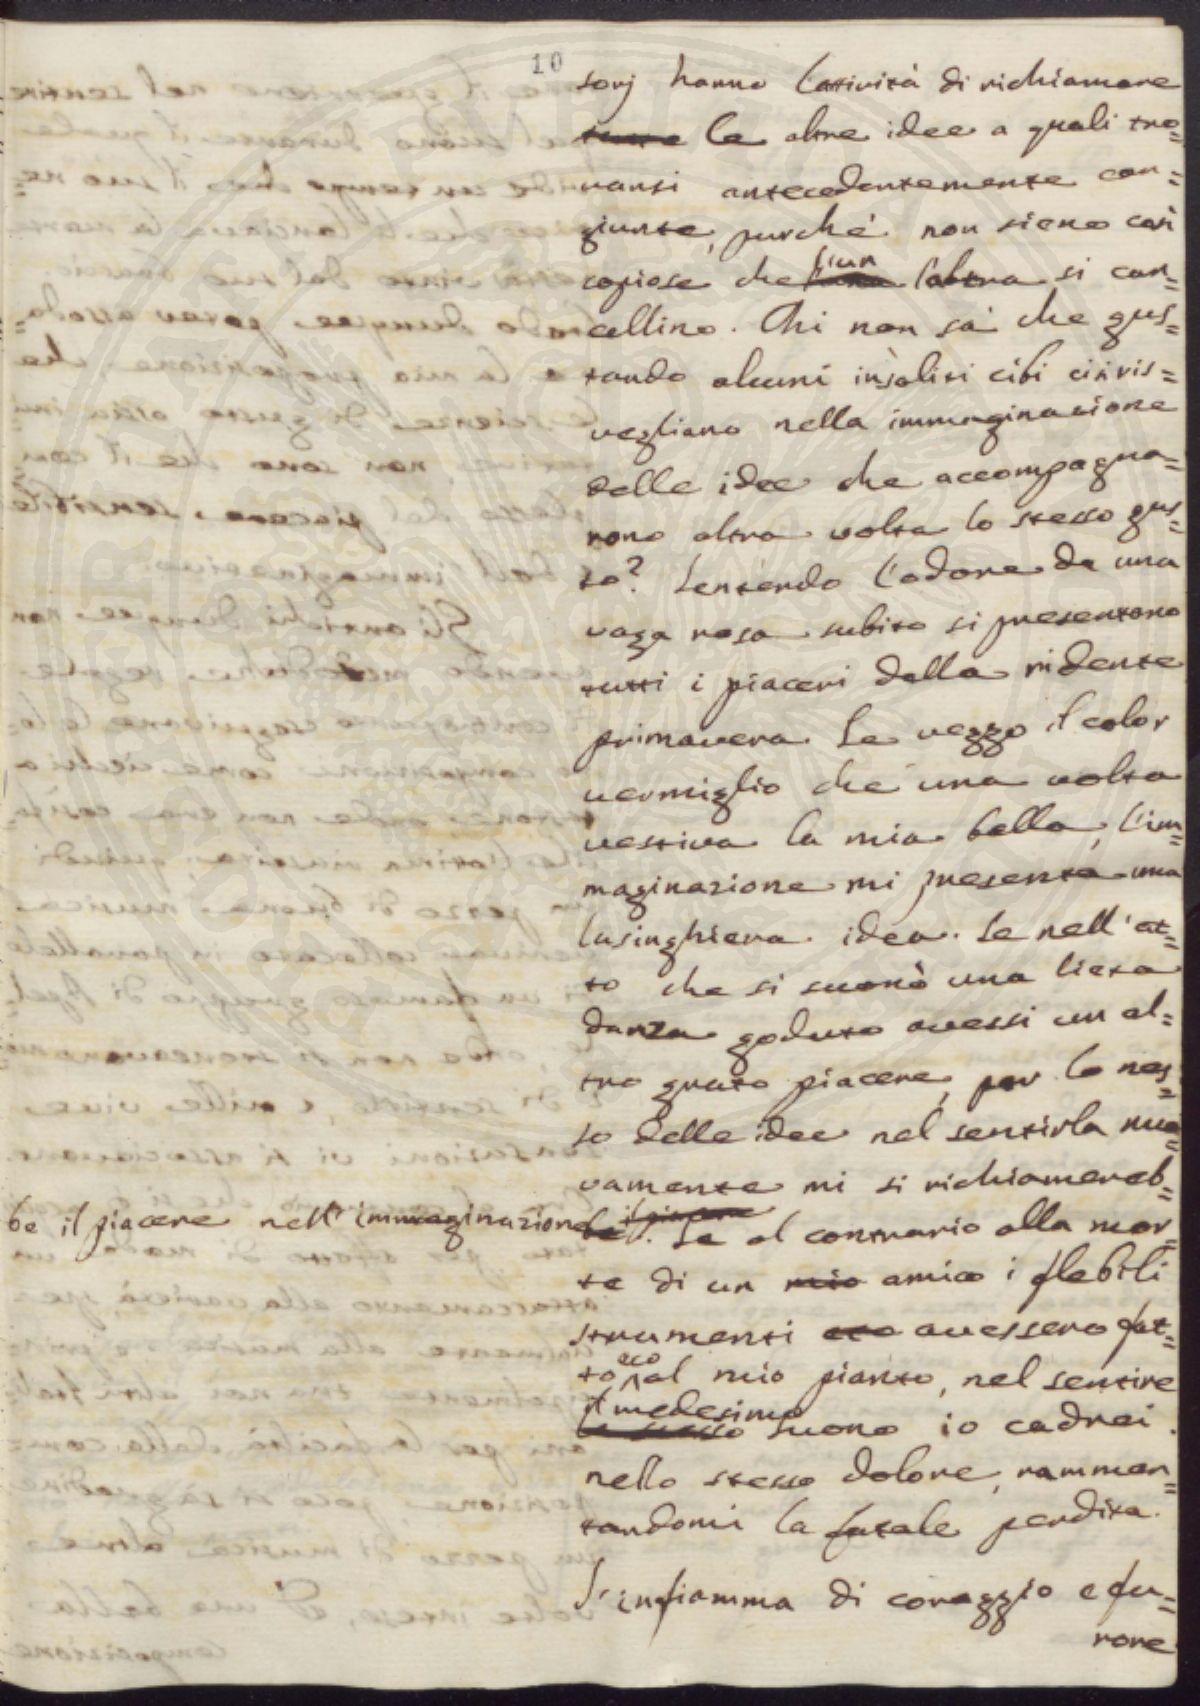 10
sorj hanno l'attività di richiamare
tutte le altre idee a quali tro=
vansi antecedentemente con=
giunte, purchè non sieno così
copiose che l'un l'altra si can=
cellino. Chi non sà che gus=
tando alcuni insoliti cibi ci ris=
vegliano nella immaginazione
delle idee che accompagna=
rono altra volta lo stesso gus=
to? Sentendo l'odore de una
vaga rosa subito si presentono
tutti i piaceri della ridente
primavera. Se veggo il color
vermiglio che una volta
vestiva la mia bella, l'im=
maginazione mi presenta una
lusinghiera idea. Se nell'at=
to che si suonò una lieta
danza goduto avessi un al=
tro grato piacere, per lo nes=
so delle idee nel sentirla nuo=
vamente mi si richiamereb=
be il piacere nell'immaginazione be il piacere. Se al contrario alla mor=
te di un mio amico i flebili
strumenti eco avessero fat=
to eco al mio pianto, nel sentire
il medesimo lo stesso suono io cadrei
nello stesso dolore, rammen=
tandomi la fatale perdita.
S'infiamma di coraggio e fu=
rore